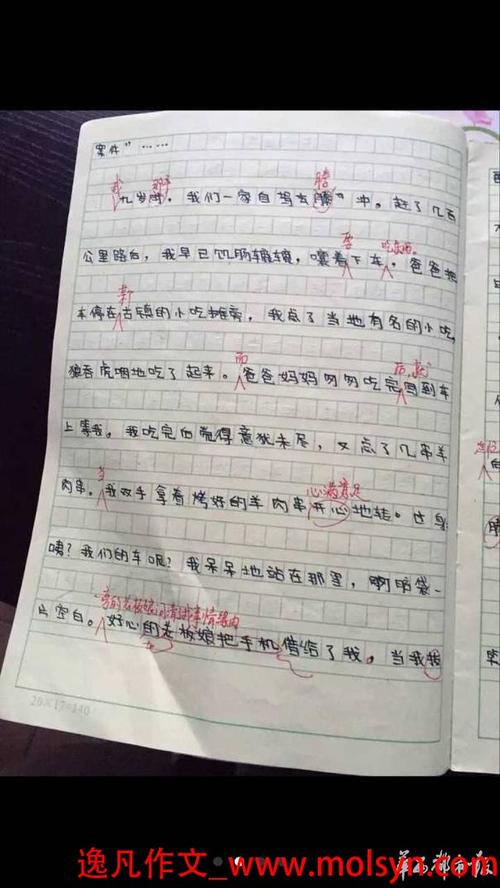 案件”……
我 那年 腾
九岁时，我们一家自驾去腾冲。赶了几百
要 吃东西。
公里路后，我早已饥肠辘辘，嚷着下车。爸爸把
车停在古镇的小吃摊旁，我点了当地有名的小吃，
而 后，就
狼吞虎咽地吃了起来。爸爸妈妈匆匆吃完回到车
上等我。我吃完后觉得意犹未尽，又点了几串羊
当 心满意足
肉串。我双手拿着烤好的羊肉串开心地转过身
咦？我们的车呢？我呆呆地站在那里，脑袋一
旁的老板娘问清事情缘由
片空白。好心的老板娘把手机借给了我。当我
20×17=340
逸凡作文_www.molsyn.com
华西都市报